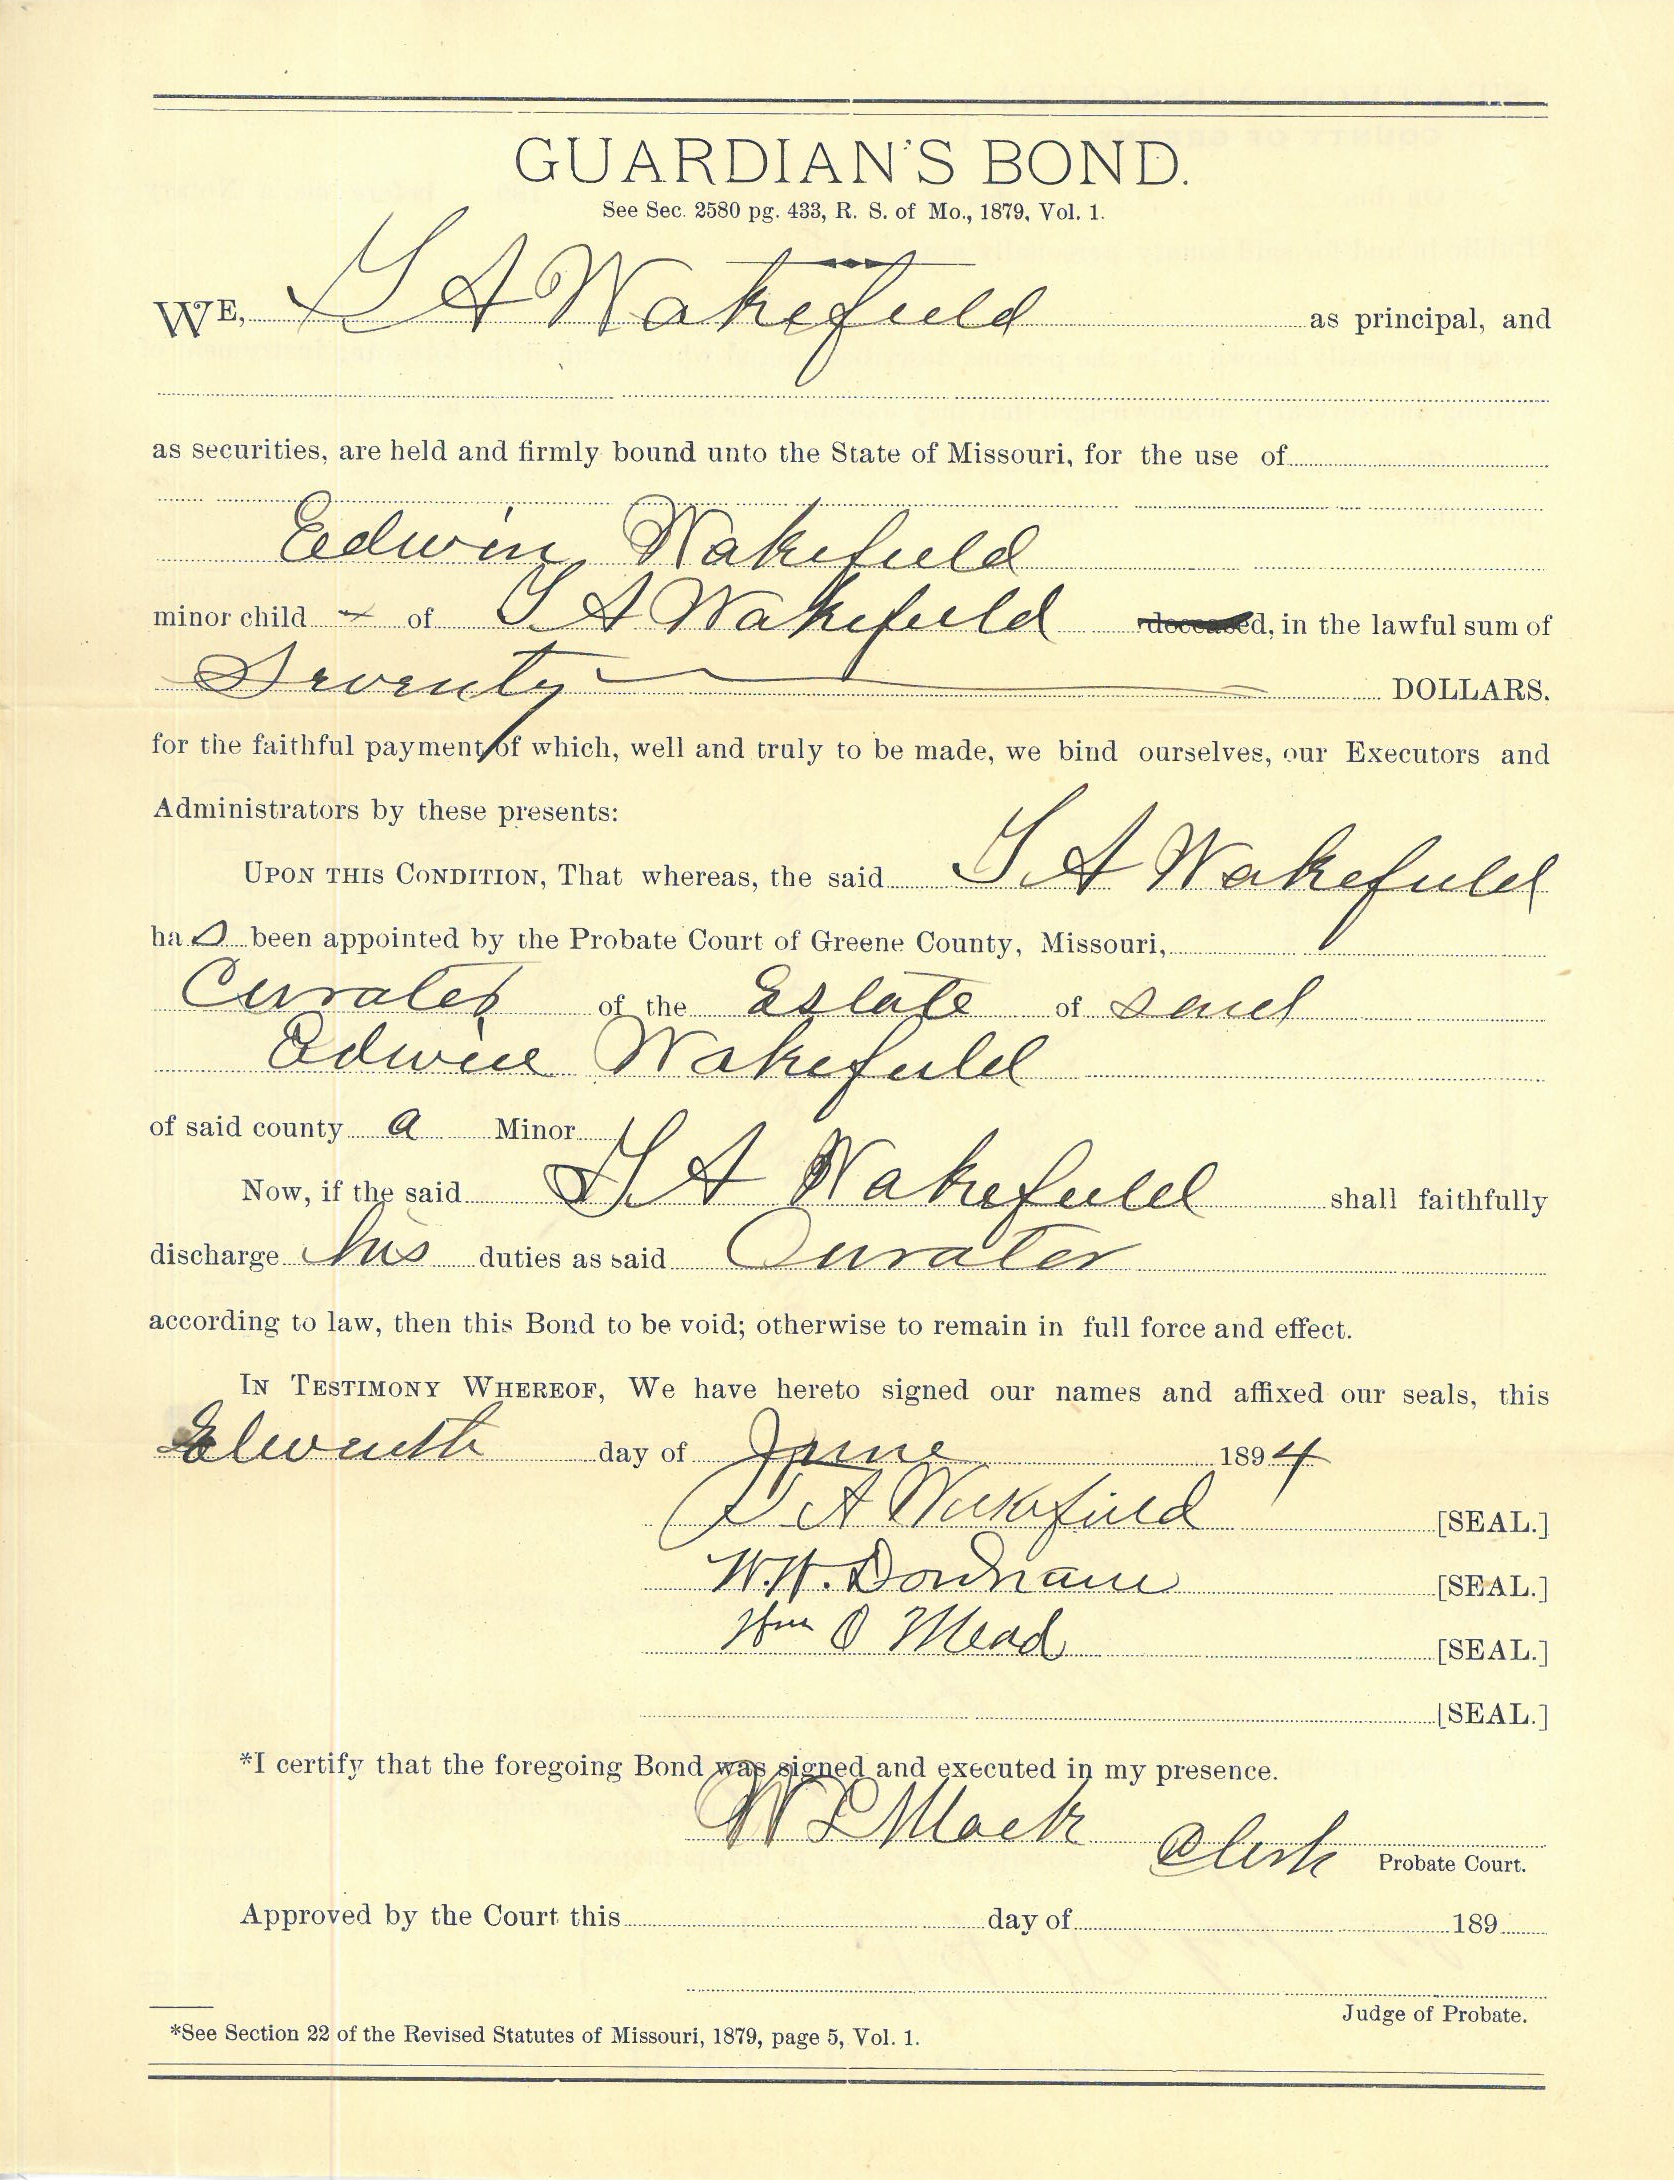 GUARDIAN'S BOND.
See Sec. 2580 pg. 433, R. S. of Mo., 1879, Vol. 1.
WE, A Wakefield as principal, and
as securities, are held and firmly bound unto the State of Missouri, for the use of
Edwin Wakefield
minor child of A Wakefield deceased, in the lawful sum of
Seventy DOLLARS.
for the faithful payment of which, well and truly to be made, we bind ourselves, our Executors and
Administrators by these presents:
UPON THIS CONDITION, That whereas, the said A Wakefield
has been appointed by the Probate Court of Greene County, Missouri,
Curator of the Estate of said
Edwin Wakefield
of said county a Minor
Now, if the said A Wakefield shall faithfully
discharge his duties as said Curator
according to law, then this Bond to be void; otherwise to remain in full force and effect.
IN TESTIMONY WHEREOF, We have hereto signed our names and affixed our seals, this
Elventh day of June 1894
A Wakefield [SEAL.]
W. H. [SEAL.]
Wm O Mead [SEAL.]
[SEAL.]
*I certify that the foregoing Bond was signed and executed in my presence.
W L Mack Clerk
Probate Court.
Approved by the Court this day of 189
Judge of Probate.
*See Section 22 of the Revised Statutes of Missouri, 1879, page 5, Vol. 1.